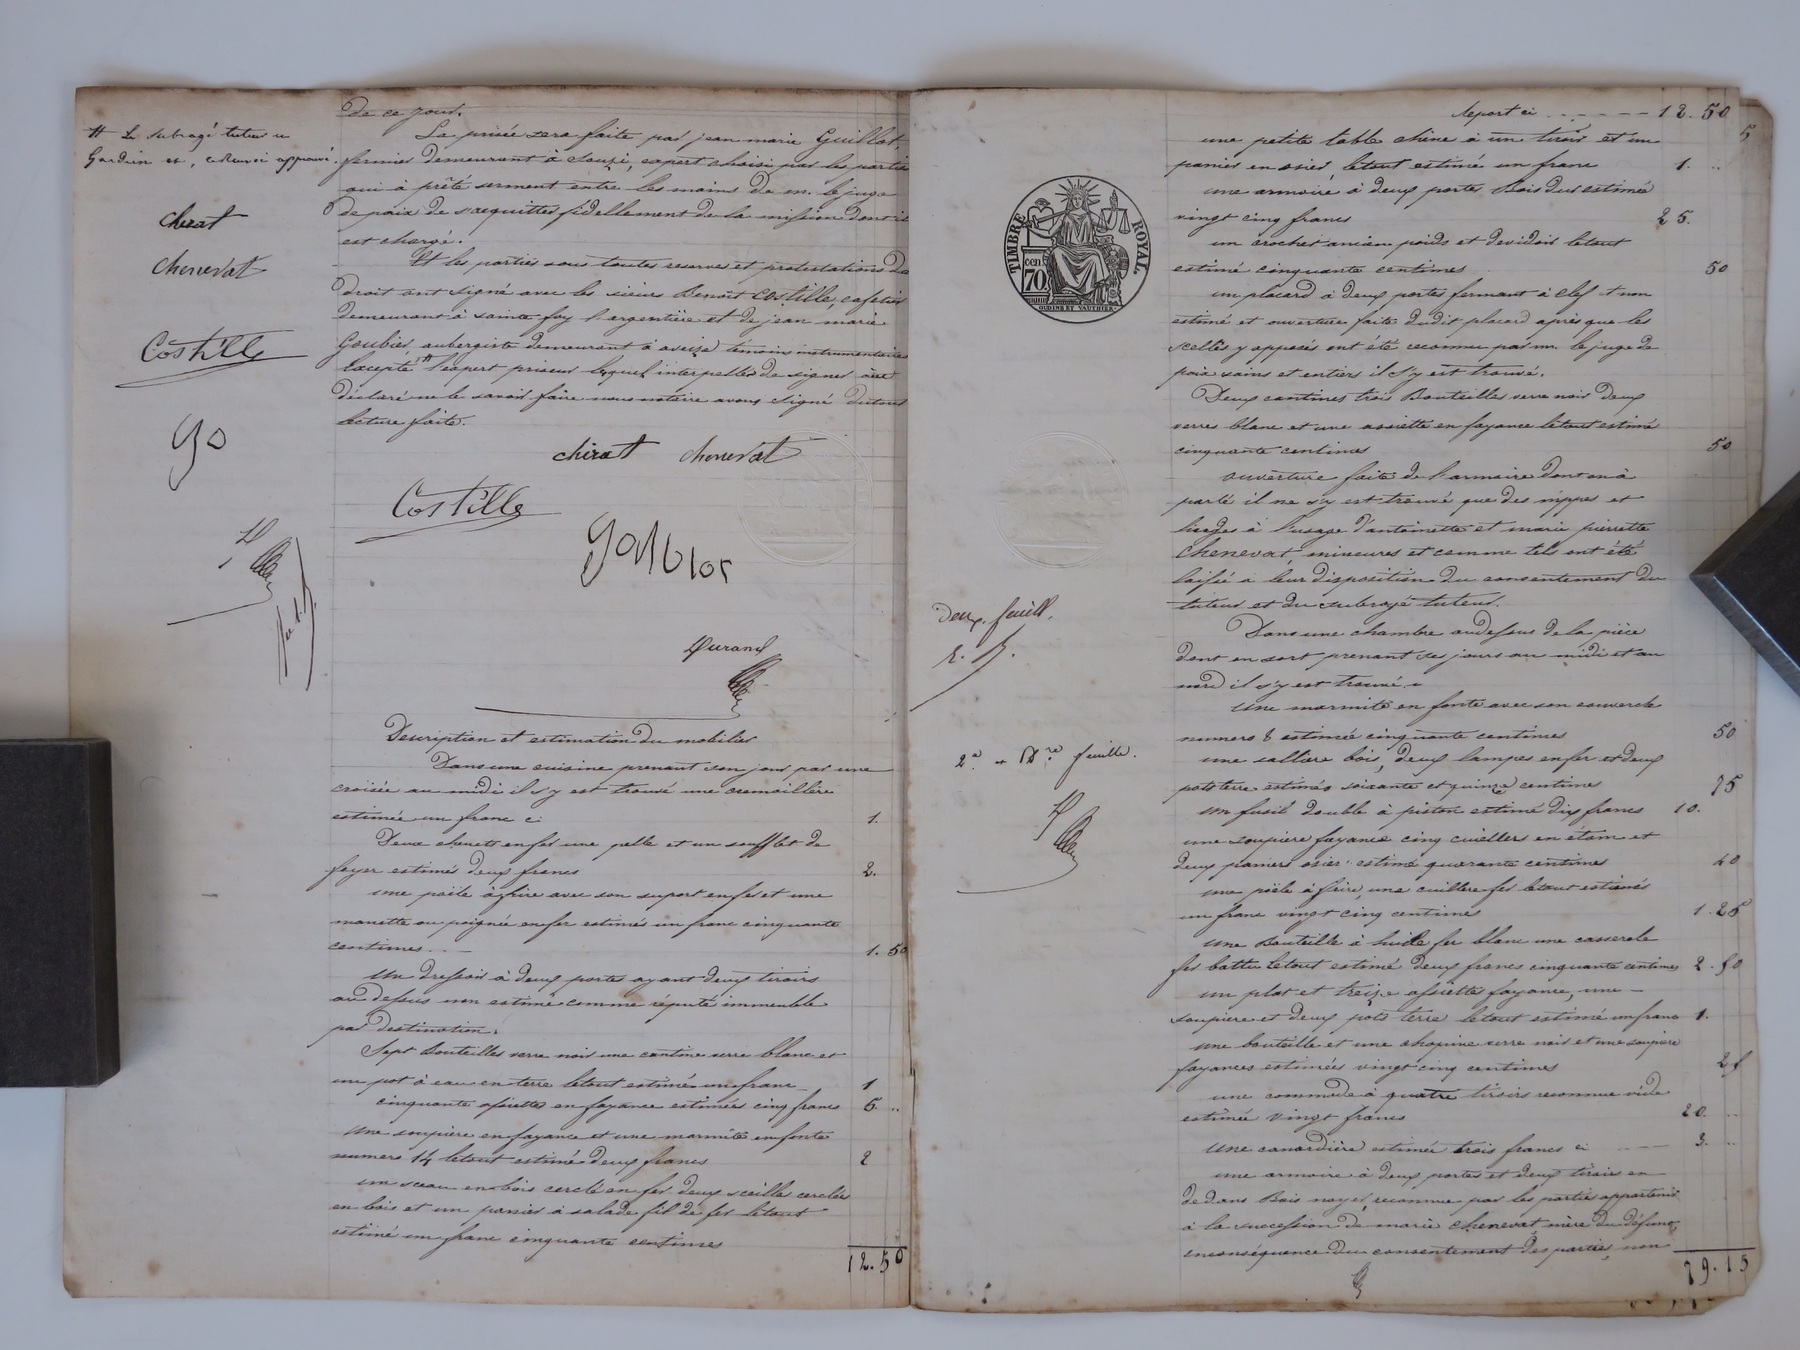 # Le subrogé tuteur
Gardien et, renvoi approuvé.
chirat
chenevat
Costille
go
de ce jour.
La prisée sera faite par jean marie Guillot,
fermier demeurant à Souzi, expert choisi par les parties
qui à prêté serment entre les mains de m. le juge
de paix de s'acquitter fidellement de la mission dont il
est chargé.
Et les parties sous toutes reserves et protestations de
droit ont signé avec les sieurs Benoit Costille, cafetier
demeurant à sainte foy l'argentière et de jean marie
Goubier aubergiste demeurant à aveize témoins instrumentaires
l'expert priseur lequel interpellé de signer
déclaré ne le savoir faire nous notaire avons signé du tout
lecture faite.
chirat chenevat
Costille
Durand
Description et estimation du mobilier
Dans une cuisine prenant son jour par une
croisée au midi il s'y est trouvé une cremaillère
estimée un franc ci 1.
Deux chenets en fer une pelle et un soufflet de
foyer estimés deux francs 2.
une poële à frire avec son suport en fer et une
manette ou poignée en fer estimés un franc cinquante
centimes 1. 50
Un dressoir à deux portes ayant deux tiroirs
au dessus non estimé comme réputé immeuble
par destination.
Sept Bouteilles verre noir une cantine verre blanc et
un pot à eau en terre le tout estimés un franc 1
cinquante assiettes en fayance estimées cinq francs 5. ..
Une soupière en fayance et une marmite en fonte
numero 14 le tout estimé deux francs 2
un sceau en bois cerclé en fer deux seilles cerclées
en bois et un panier à salade fil de fer le tout
estimé un franc cinquante centimes
12. 50
TIMBRE ROYAL.
cen. 70
deux. feuill.
2.e et D.re feuille.
Report ci 12. 50
5
une petite table chêne à un tiroir et un
panier en osier le tout estimé un franc 1. ..
une armoire à deux portes bois dur estimée
vingt cinq francs 25.
un crochet ancien poids et devidoir le tout
estimé cinquante centimes 50
un placard à deux portes fermant à clef et non
estimé et ouverture faite dudit placard après que les
scellés y apposés ont été reconnu par m. le juge de
paix sains et entiers il s'y est trouvé.
Deux cantines trois Bouteilles verre noir deux
verres blanc et une assiette en fayance le tout estimé
cinquante centimes 50
ouverture faite de l'armoire dont on à
parlé il ne s'y est trouvé que des nippes et
linges à l'usage d'antoinette et marie pierrette
Chenevat mineures et comme tels ont été
laissé à leur disposition du consentement du
tuteur et du subrogé tuteur.
Dans une chambre au dessus de la pièce
dont on sort prenant ses jours au midi et au
nord il s'y est trouvé.
Une marmite en fonte avec son couvercle
numero 8 estimée cinquante centimes 50
une sallière bois, deux lampes en fer et deux
pots terre estimés soixante et quinze centimes 75
un fusil double à piston estimé dix francs 10.
une soupière fayance cinq cuillers en étain et
deux paniers osier estimé quarante centimes 40
une poële à frire, une cuillere fer le tout estimés
un franc vingt cinq centimes 1. 25
Une Bouteille à huile fer blanc une casserole
fer battu le tout estimé deux francs cinquante centimes 2. 50
un plat et treize assiettes fayance, une
soupière et deux pots terre le tout estimé un franc 1.
une bouteille et une chopine verre noir et une soupière
fayances estimées vingt cinq centimes 25
une commode à quatre tiroirs reconnue vide
estimée vingt francs 20. ..
Une canardière estimée trois francs ci 3. ..
une armoire à deux portes et deux tiroirs en
dedans Bois noyer, reconnue par les parties appartenir
à la succession de marie chenevat mère du défunt,
en conséquence du consentement des parties, non
79. 15